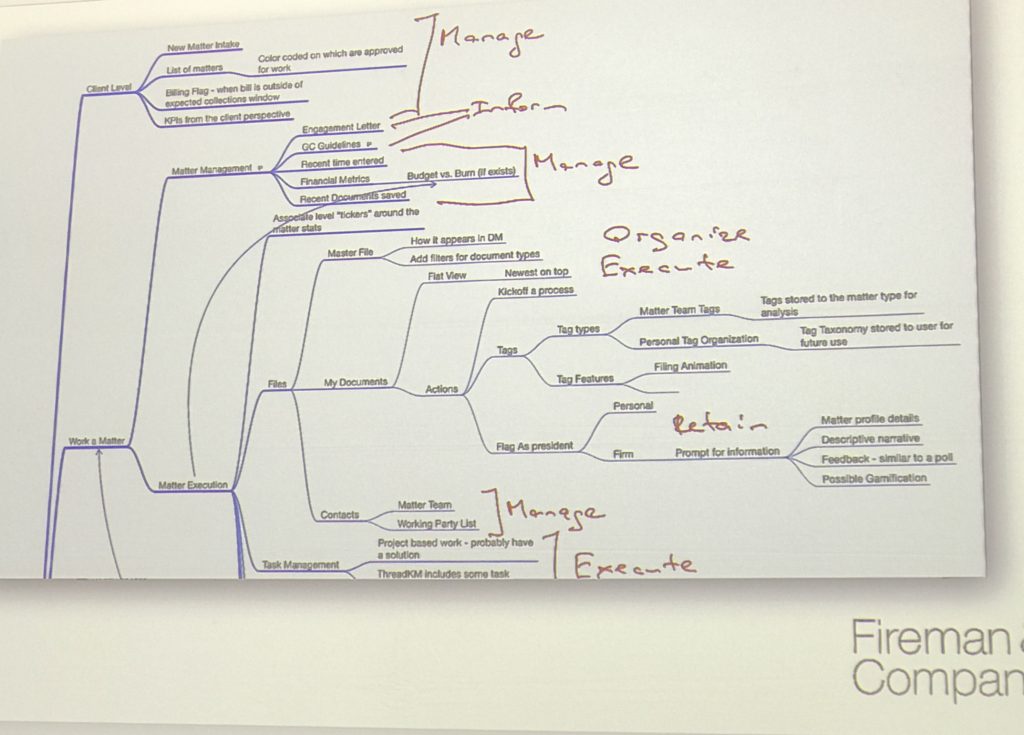 New Matter Intake
List of matters
Color coded on which are approved
for work
Client Level
Billing Flag - when bill is outside of
expected collections window
KPIs from the client perspective
Manage
Engagement Letter
Inform
GC Guidelines
Matter Management
Recent time entered
Financial Metrics
Budget vs. Burn (if exists)
Recent Documents saved
Manage
Associate level "tickers" around the
matter stats
Organize
Execute
Master File
How it appears in DM
Add filters for document types
Flat View
Newest on top
Kickoff a process
Matter Team Tags
Tags stored to the matter type for
analysis
Tag types
Personal Tag Organization
Tag Taxonomy stored to user for
future use
Tags
Filing Animation
Tag Features
Files
My Documents
Actions
Personal
Retain
Flag As president
Firm
Prompt for information
Matter profile details
Descriptive narrative
Feedback - similar to a poll
Possible Gamification
Work a Matter
Matter Execution
Contacts
Matter Team
Working Party List
Manage
Project based work - probably have
a solution
Task Management
ThreadKM includes some task
Execute
Fireman
Compan